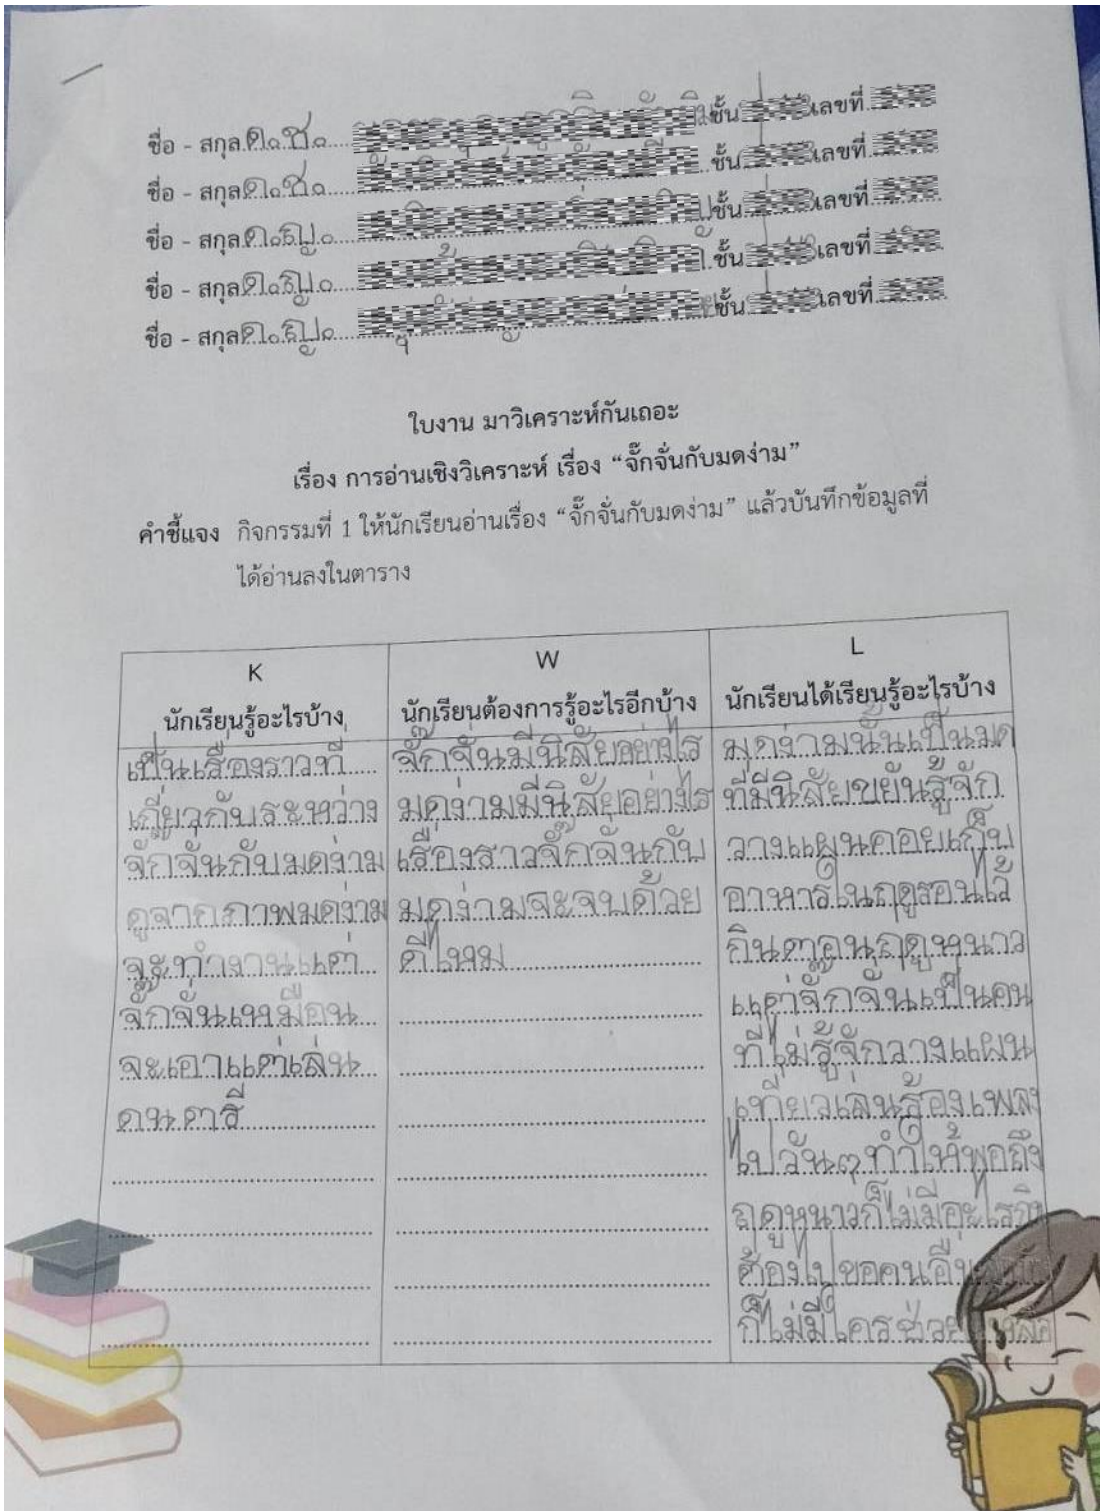 ชื่อ - สกุล ด.ช. ชั้น เลขที่
ชื่อ - สกุล ด.ช. ชั้น เลขที่
ชื่อ - สกุล ด.ญ. ชั้น เลขที่
ชื่อ - สกุล ด.ญ. ชั้น เลขที่
ชื่อ - สกุล ด.ญ. ชั้น เลขที่
ใบงาน มาวิเคราะห์กันเถอะ
เรื่อง การอ่านเชิงวิเคราะห์ เรื่อง “จั๊กจั่นกับมดง่าม”
คำชี้แจง กิจกรรมที่ 1 ให้นักเรียนอ่านเรื่อง “จั๊กจั่นกับมดง่าม” แล้วบันทึกข้อมูลที่
ได้อ่านลงในตาราง
K
นักเรียนรู้อะไรบ้าง
เป็นเรื่องราวที่
เกี่ยวกับระหว่าง
จั๊กจั่นกับมดง่าม
ดูจากภาพมดง่าม
จะทำงานแต่
จั๊กจั่นเหมือน
จะเอาแต่เล่น
ดนตรี
W
นักเรียนต้องการรู้อะไรอีกบ้าง
จั๊กจั่นมีนิสัยอย่างไร
มดง่ามมีนิสัยอย่างไร
เรื่องราวจั๊กจั่นกับ
มดง่ามจะจบด้วย
ดีไหม
L
นักเรียนได้เรียนรู้อะไรบ้าง
มดง่ามนั้นเป็นมด
ที่มีนิสัยขยันรู้จัก
วางแผนคอยเก็บ
อาหารในฤดูรอนไว้
กินตอนฤดูหนาว
แต่จั๊กจั่นเป็นคน
ที่ไม่รู้จักวางแผน
เที่ยวเล่นร้องเพลง
ไปวันๆทำให้พอถึง
ฤดูหนาวก็ไม่มีอะไรกิน
ต้องไปขอคนอื่น
ก็ไม่มีใครช่วยเหลือ